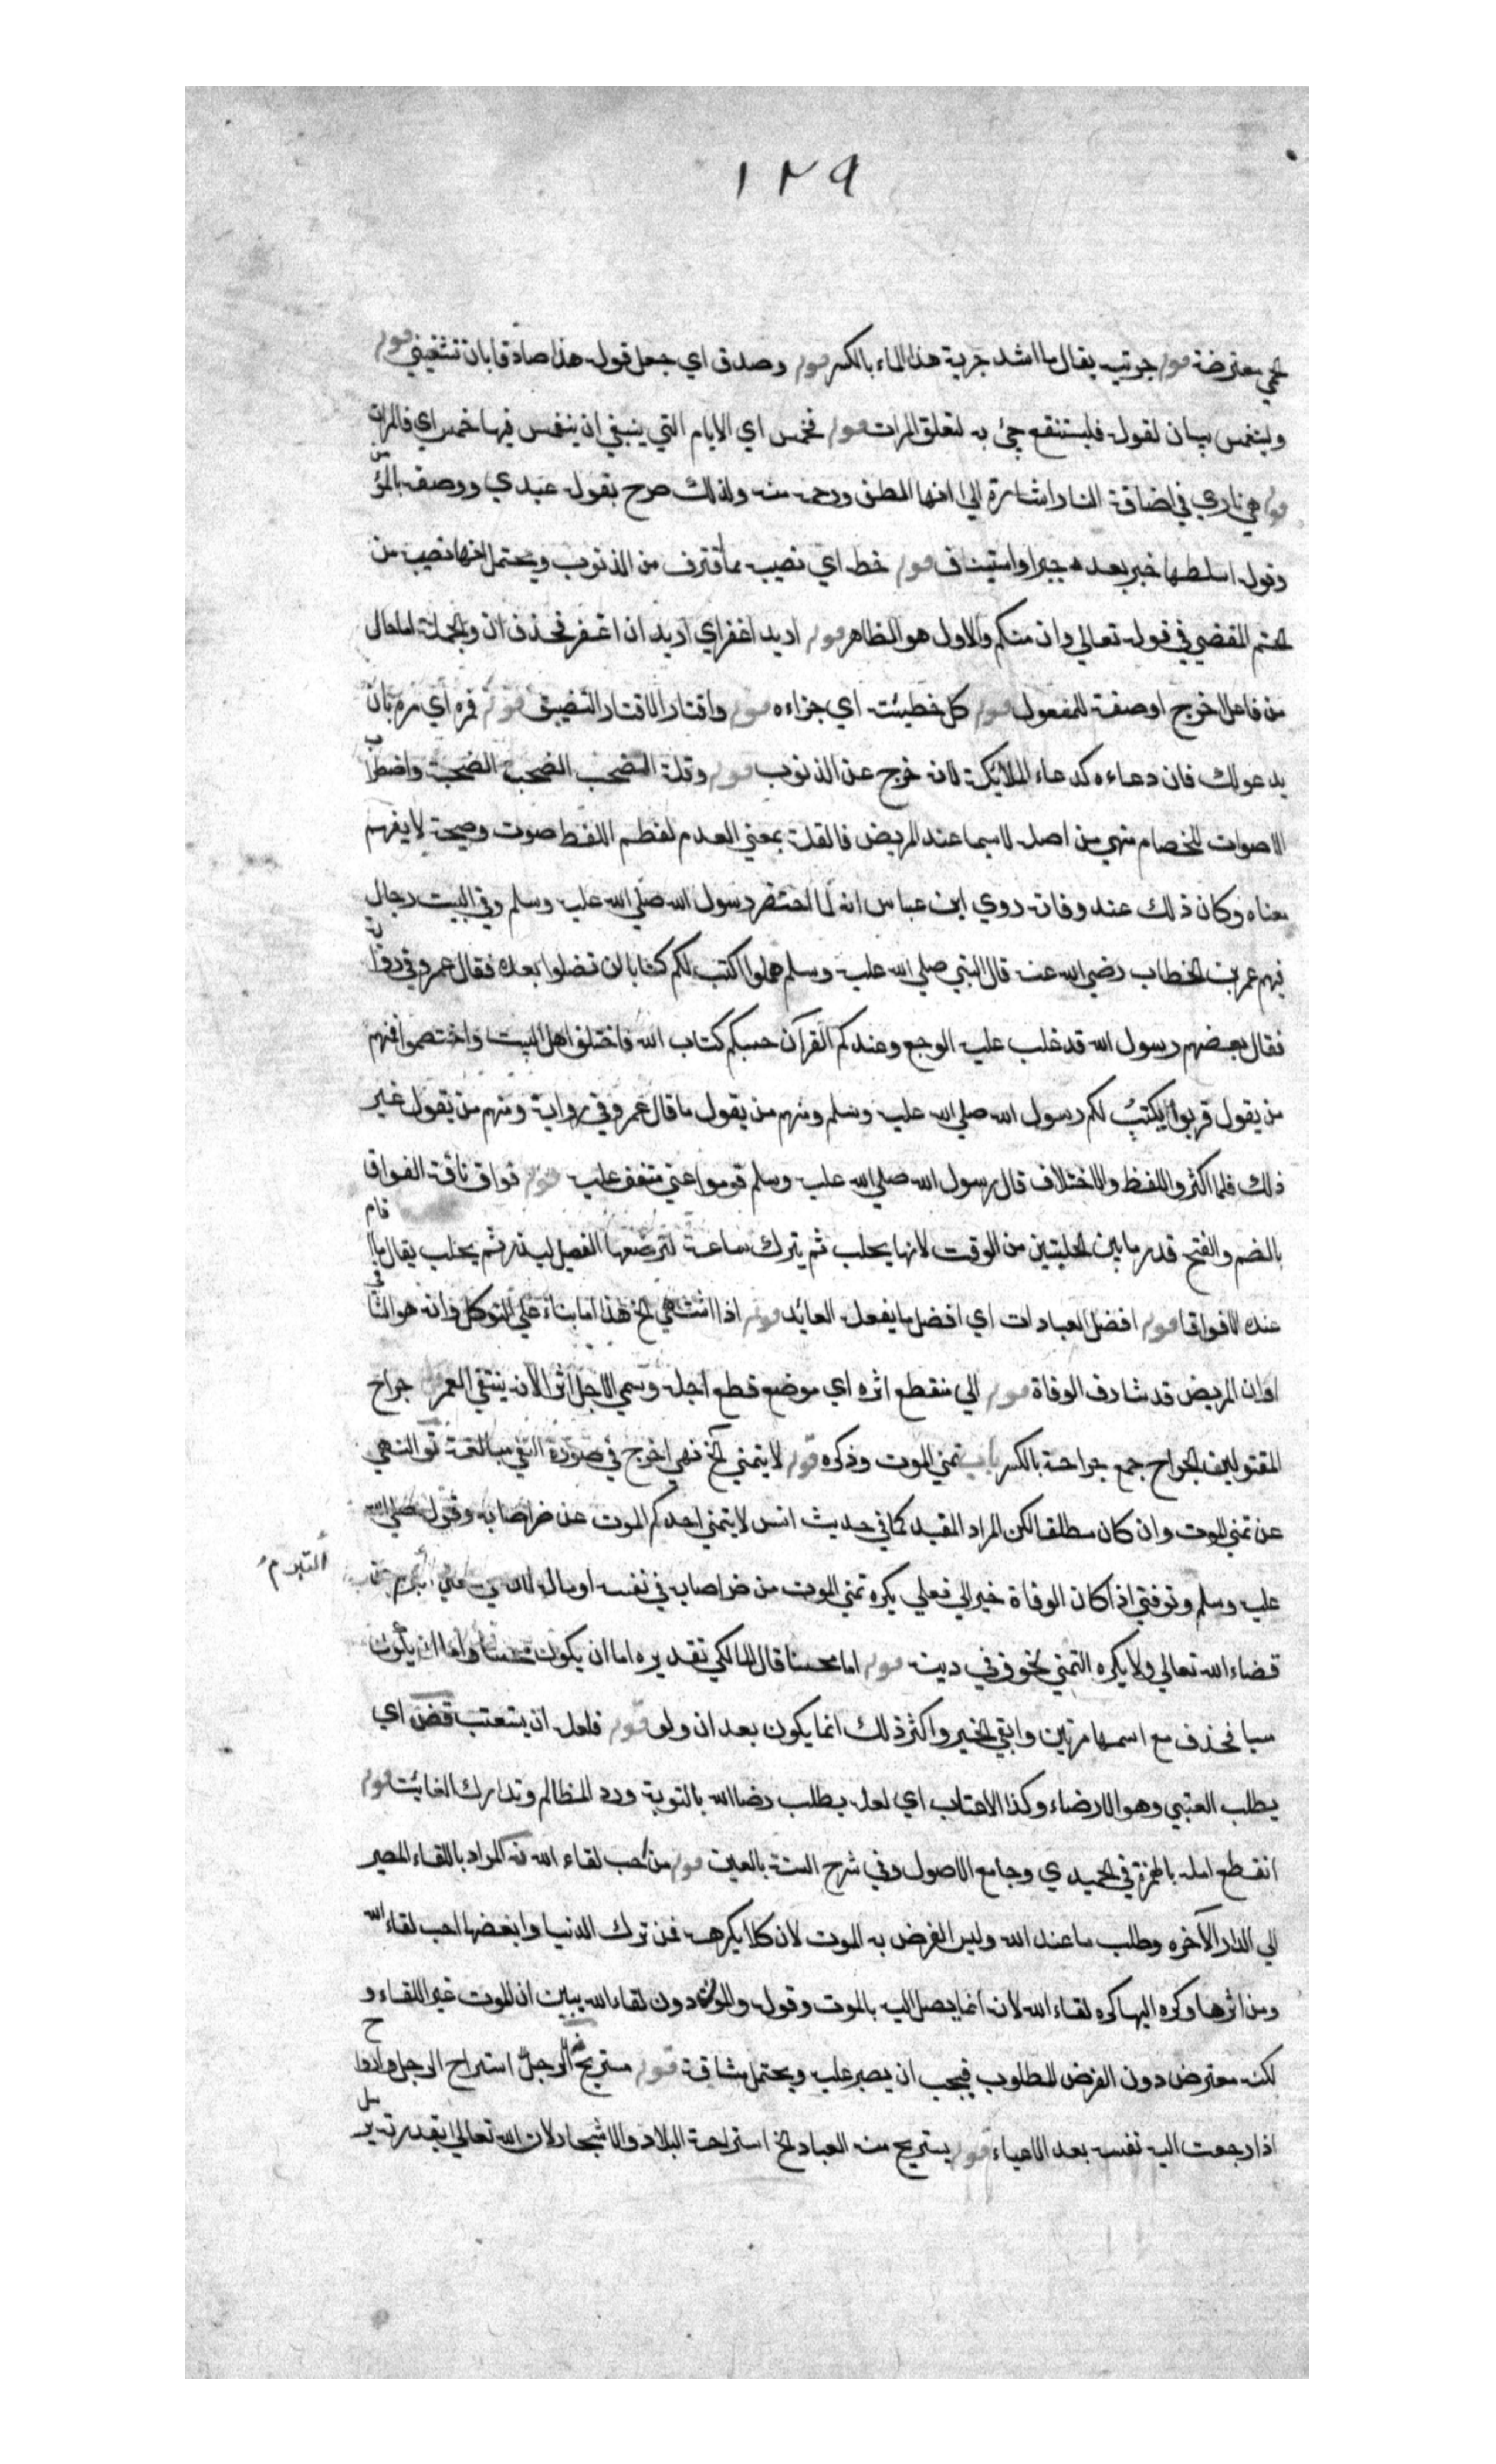 ١٢٩
لحمي معترضة قوله جريته يقال ما اشد جرية هذا الماء بالكسر قوله وصدق اي جعل قوله هذا صادقا بان تشفيني قوله
ولينغمس بيان لقوله فليستنقع جئ به لتعلق المرات قوله فخمس اي الايام التي ينبغي ان ينغمس فيها خمس اي فالمرات
قوله هي ناري في اضافة النار اشارة الي انها لطف ورحمة منه ولذلك صرح بقوله عبدي ووصفه بالمؤمن
وقوله اسلطها خبر بعد خبر او استيناف قوله حظه اي نصيبه مما اقترف من الذنوب ويحتمل انها نصيبه من
الحتم المقضي في قوله تعالي وان منكم والاول هو الظاهر قوله اريد اغفر اي اريد ان اغفر فحذف ان والجملة اما حال
من فاعل اخرج او صفة للمفعول قوله كل خطيئته اي جزاءه قوله واقتار الاقتار التضييق قوله فمره اي مره بان
يدعو لك فان دعاءه كدعاء الملائكة لانه خرج عن الذنوب قوله وقلة الصخب الصخب الضجة واضطراب
الاصوات للخصام منهي من اصله لا سيما عند المريض فالقلة بمعني العدم لغطهم اللغط صوت وضجة لا يفهم
معناه وكان ذلك عند وفاته روي ابن عباس انه لما احتضر رسول الله صلي الله عليه وسلم وفي البيت رجال
فيهم عمر بن الخطاب رضي الله عنه قال النبي صلي الله عليه وسلم هلموا اكتب لكم كتابا لن تضلوا بعده فقال عمر وفي رواية
فقال بعضهم رسول الله قد غلب عليه الوجع وعندكم القرآن حسبكم كتاب الله فاختلف اهل البيت واختصموا فمنهم
من يقول قربوا يكتب لكم رسول الله صلي الله عليه وسلم ومنهم من يقول ما قال عمر وفي رواية ومنهم من يقول غير
ذلك فلما اكثروا اللغط والاختلاف قال رسول الله صلي الله عليه وسلم قوموا عني متفق عليه قوله فواق ناقة الفواق
بالضم والفتح قدر ما بين الحلبتين من الوقت لانها يحلب ثم يترك ساعة لترضعها الفصيل ليدر ثم يحلب يقال ما اقام
عنده الا فواقا قوله افضل العبادات اي افضل ما يفعله العائد قوله اذا اشتهي الخ هذا اما بناء علي التوكل وانه هو الشافي
او ان المريض قد شارف الوفاة قوله الي منقطع اثره اي موضع قطع اجله وسمي الاجل اثرا لانه يتبع العمر قوله جراح
المقتولين الجراح جمع جراحة بالكسر باب تمني الموت وذكره قوله لا يتمني الخ نهي اخرج في صورة النفي مبالغة تو النهي
عن تمني الموت وان كان مطلقا لكن المراد المقيد كما في حديث انس لا يتمني احدكم الموت عن ضر اصابه وقوله صلي الله
عليه وسلم وتوفني اذا كان الوفاة خيرا لي فعلي يكره تمني الموت من ضر اصابه في نفسه او ماله لانه في معني
التبرم
قضاء الله تعالي ولا يكره التمني لخوف في دينه قوله اما محسنا قال المالكي تقديره اما ان يكون محسنا واما ان يكون
مسيا فحذف مع اسمها مرتين وابقي الخبر واكثر ذلك انما يكون بعد ان ولو قوله فلعله ان يستعتب قض اي
يطلب العتبي وهو الارضاء وكذا الاعتاب اي لعله يطلب رضا الله بالتوبة ورد المظالم وتدارك الفائت قوله
انقطع امله بالهمزة في الحميدي وجامع الاصول وفي شرح السنة بالعين قوله من احب لقاء الله نه المراد باللقاء المصير
الي الدار الآخره وطلب ما عند الله وليس الغرض به الموت لان كلا يكرهه فمن ترك الدنيا وابغضها احب لقاء الله
ومن اثرها وكره اليها كره لقاء الله لانه انما يصل اليه بالموت وقوله والموت دون لقاء الله يبين ان الموت غير اللقاء و
لكنه معترض دون الغرض المطلوب فيجب ان يصبر عليه ويحتمل مشاقه قوله مستريح الرجل استراح الرجل واراح
اذا رجعت اليه نفسه بعد الاعياء قوله يستريح منه العباد الخ استراحة البلاد والاشجار لان الله تعالي بقدرته يرسل